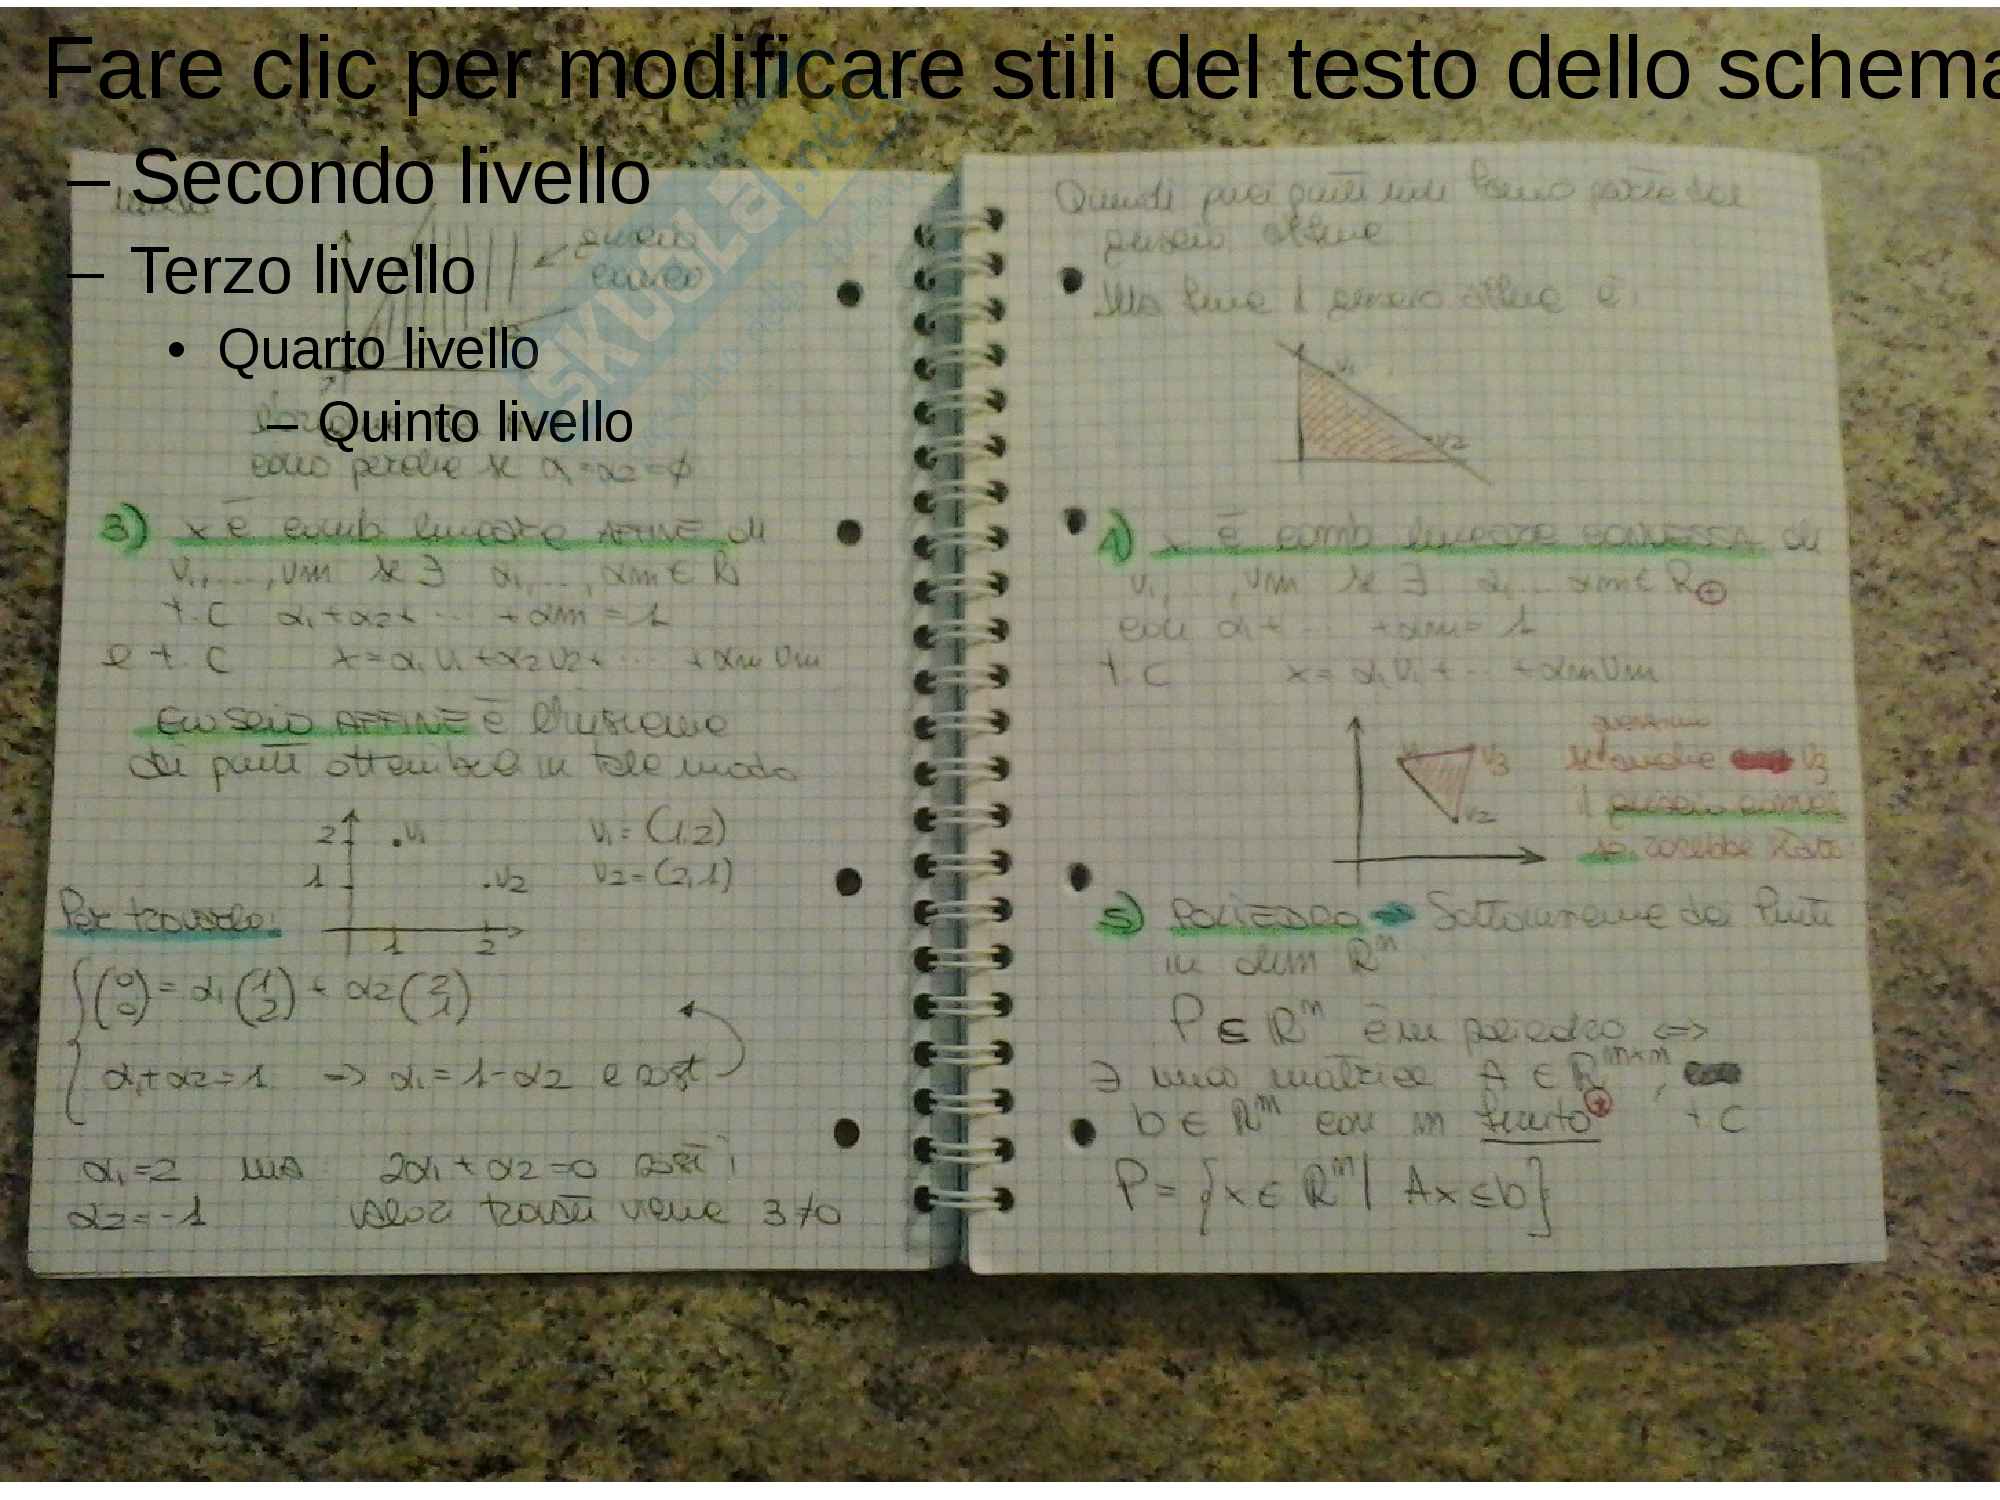 Fare clic per modificare stili del testo dello schema
– Secondo livello
– Terzo livello
• Quarto livello
– Quinto livello
SKUOLA.net
perché se α1=α2=ø
3) x è comb lineare AFFINE di
v1,...,vm se ∃ α1,...,αm ∈ R
t.c α1+α2+ ... +αm = 1
e t.c x=α1v1+α2v2+ ... +αmvm
AFFINE è l'insieme
dei punti ottenibili in tale modo
2 .v1 v1=(1,2)
1 .v2 v2=(2,1)
1 2
Per trovarlo:
(0 0) = α1(1 2) + α2(2 1)
α1+α2=1 => α1=1-α2 e
α1=2 ma 2α1+α2=0
α2=-1 valori trovati viene 3≠0
Quindi punti non fanno parte del
affine
affine è:
v1
v2
4) x è comb lineare CONVESSA di
v1,...,vm se ∃ α1...αm ∈ R⊕
con α1+ ... +αm=1
t.c x=α1v1+ ... +αmvm
se anche v3
v1 v3
v2
sarebbe stato
5) POLIEDRO → Sottoinsieme dei Punti
in dim Rⁿ
P ⊆ Rⁿ è un poliedro <=>
∃ una matrice A ∈ Rᵐˣⁿ,
b ∈ Rᵐ con m finito t.c
P = {x ∈ Rⁿ | Ax ≤ b}